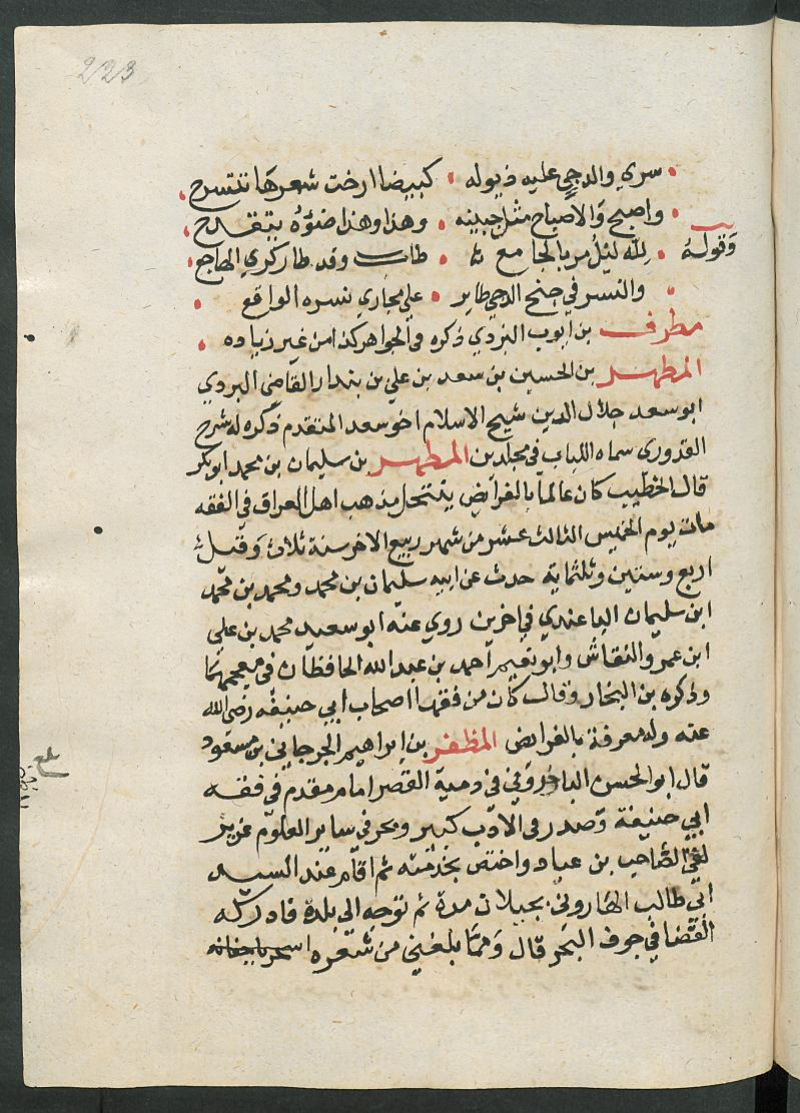 223
سري والدجي عليه ذيوله • كبيضا ارخت شعرها تتسرح •
واصبح والاصباح مثل جبينه • وهذا وهذا ضوؤه يتقدح •
وقوله • لله ليل مر بالجامع لنا • طاب وقد طار كري الهاجع •
والنسر في جنح الدجي طاير • علي مجاري نسره الواقع •
مطرف بن ايوب البزدي ذكره في الجواهر كذا من غير زياده •
المطهر بن الحسين بن سعد بن علي بن بندار القاضي اليزدي
ابو سعد جلال الدين شيخ الاسلام اخو سعد المتقدم ذكره له شرح
القدوري سماه اللباب في مجلدين المطهر بن سليمان بن محمد ابو بكر
قال الخطيب كان عالما بالفرايض ينتحل مذهب اهل العراق في الفقه
مات يوم الخميس الثالث عشر من شهر ربيع الاخر سنة ثلاث وقيل
اربع وستين وثلثماية حدث عن ابيه سليمان بن محمد ومحمد بن محمد
ابن سليمان الباغندي في اخرين روي عنه ابو سعيد محمد بن علي
ابن عمرو النقاش وابو نعيم احمد بن عبد الله الحافظان في معجمهما
وذكره بن النجار وقال كان من فقها اصحاب ابي حنيفه رضي الله
عنه وله معرفة بالفرايض المظفر بن ابراهيم الجرجاني بن مسعود
قال ابو الحسن الباخرزي في دمية القصر امام مقدم في فقه
ابي حنيفة وصدر في الادب كبير وبحر في ساير العلوم غزير
لقي الصاحب بن عباد واختص بخدمته ثم اقام عند السيد
ابي طالب الهاروني بجيلان مدة ثم توجه الي بلدة فادركه
القضا في جوف البحر قال ومما بلغني من شعره